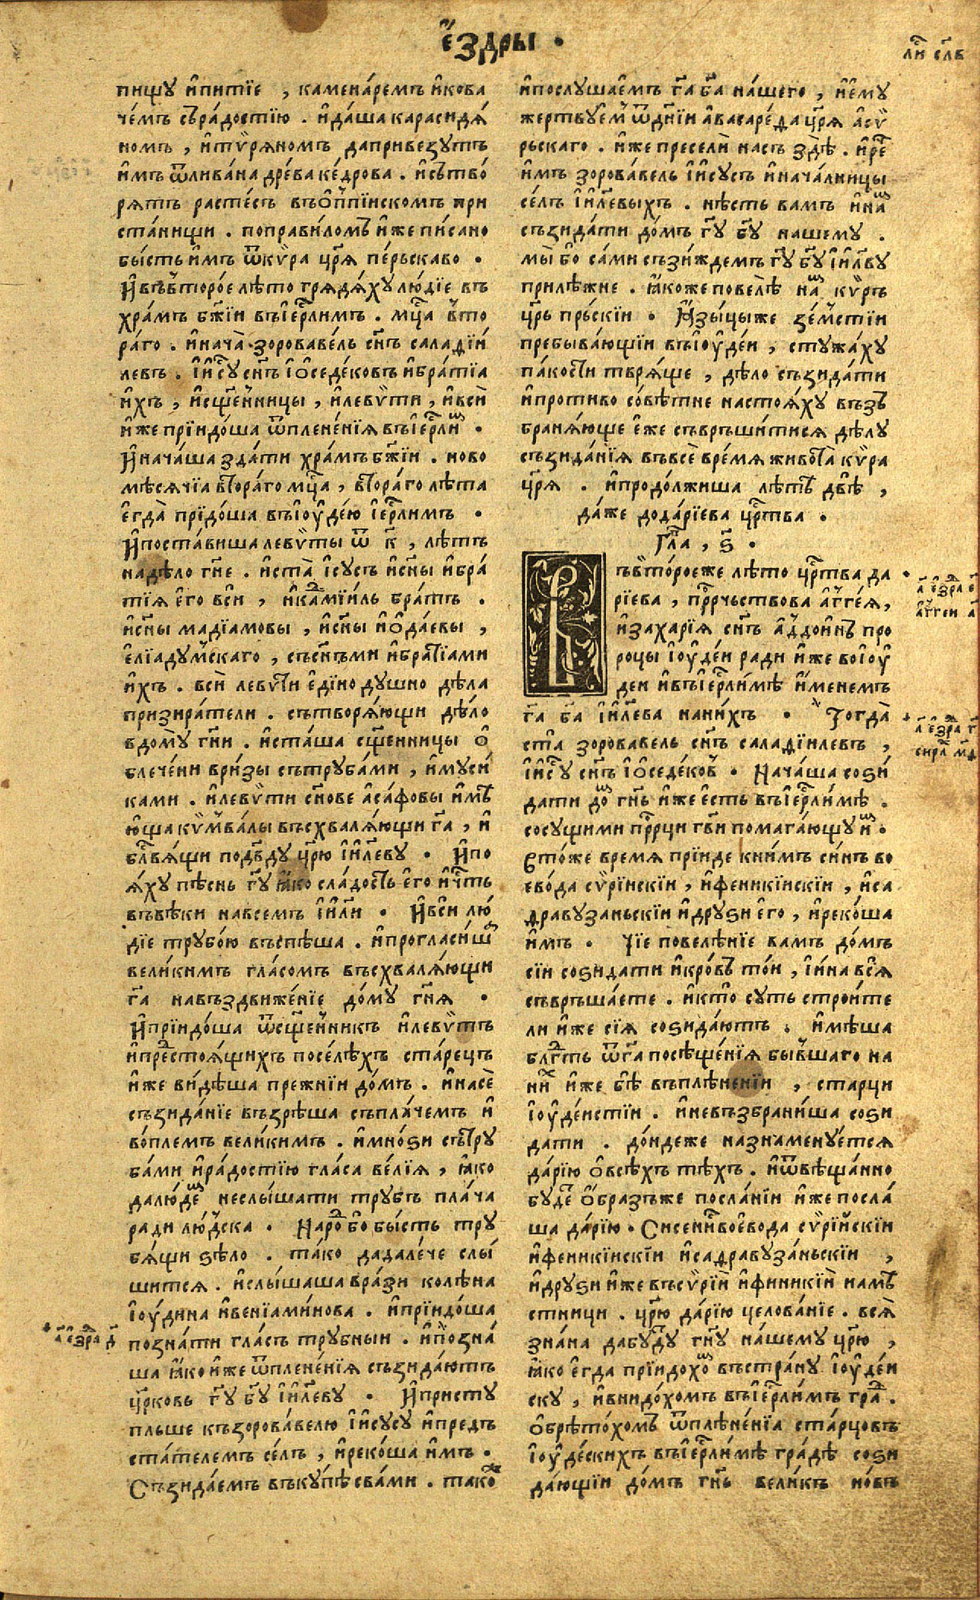 е҆здры ·
пищꙋ и҆питїе , каменаремъ и҆кова
чемъ съ́радостїю . и҆даша карасидѧ́
номъ , и҆тѵ́рѧномъ даприве́зꙋтъ
и҆мъ ѿлива́на дре́ва ке́дрова . и҆сътво
рѧтъ расте́съ въѻ҆ппїискомъ при
ста́нищи . поправиломъ и҆же писано
бы́сть и҆мъ ѿкѵ́ра цр҃ѧ пе́рьскаго .
И҆въвторо́е лѣто грѧдѧ́хꙋ лю́дїе въ
хра́мъ бж҃їи въі҆ер҃лимъ . мц҃а вто
ра́го . и҆нача̀ зорова́вель сн҃ъ саладїи
левъ . і҆и҆сꙋ́ сн҃ъ і҆ѻ҆седе́ковъ и҆бра́тїа
и҆хъ , и҆сщ҃е́нницы , и҆левѵ́ти , и҆всѝ
и҆же прїидо́ша ѿплене́нїѧ въі҆ер҃ли́мъ .
И҆нача́ша зда́ти хра́мъ бж҃їи . ново
мѣсѧчїа вто́ра́го мц҃а , вто́ра́го лѣта
е҆гда̀ прїдо́ша въі҆ꙋдею і҆ер҃лимъ .
И҆поста́виша левѵ́ты ѿ к҃ , лѣтъ
надѣло гн҃е . и҆ста̀ і҆сꙋсъ и҆сн҃ы и҆бра́
тїѧ е҆го всѝ , и҆ками́иль братъ .
и҆сн҃ы мадїамовы , и҆сн҃ы и҆ѻ҆да́евы ,
е҆лїадꙋ́мскаго , съсн҃ъми и҆бра́тїами
и҆хъ . всѝ левѵ́ти е҆ди́но дꙋшно дѣла
призира́тели . сътворѧ́ющи дѣло
вдомꙋ̀ гн҃и . и҆ста́ша сщ҃енницы ѻ҆
блече́ни вризы сътрꙋба́ми , и҆мꙋси́
ками . и҆левѵ́ти сн҃ове а҆са́фовы и҆мѣ
ю҆ща кѵмва́лы въсхвалѧ́ющи гд҃а , и҆
бл҃вѧ́щи подв҃дꙋ цр҃ю і҆и҃левꙋ . И҆по
ѧ́хꙋ пѣснь гд҃ꙋ ꙗ҆ко сла́дость е҆го и҆че́сть
въвѣки навсемъ і҆и҃ли . И҆всѝ лю́
дїе трꙋбо́ю въспѣша . и҆прогласи́ша
вели́кимъ гла́сомъ въсхвалѧ́ющи
гд҃а навъздвиже́нїе до́мꙋ гн҃ѧ .
И҆прїидо́ша ѿсщ҃е́нникъ и҆левѵ́тъ
и҆пре́стоѧщихъ посе́лѣхъ ста́рецъ
и҆же ви́дѣша прежнїи до́мъ . и҆насѐ
съзида́нїе възрѣша съпла́чемъ и҆
во́племъ вели́кимъ . и҆мно́ѕи сътрꙋ
ба́ми и҆ра́достїю гла́са ве́лїѧ , ꙗ҆ко
далю́демъ неслы́шати трꙋбъ пла́ча
ради лю́дска . Наро́дъ бо бы́сть трꙋ
бѧ́щи ѕѣло . та́ко дадале́че слы́
шитсѧ . и҆слы́шаша вра́зи колѣна
і҆ꙋ́дина и҆венїами́нова . и҆прїидо́ша
позна́ти гла́съ трꙋ́бныи . и҆позна́
ша ꙗ҆ко и҆же ѿплене́нїѧ съзида́ютъ
цр҃ковь гд҃ꙋ бг҃ꙋ і҆и҃левꙋ . И҆пристꙋ
пльше къзорова́велю і҆и҆сꙋсꙋ и҆предъ
ста́телемъ се́лъ , и҆реко́ша и҆мъ .
Съзида́емъ въкꙋ́пѣ сва́ми . тако́ж
а҃ е҆́здра д҃
ли́ст сл҃в
и҆послꙋшаемъ гд҃а бг҃а на́шего , и҆е҆мꙋ
же́ртвꙋем ѿднїи а҆васаре́да цр҃ѧ а҆сѵ́
рьскаго . и҆же пресели́ насъ здѣ . и҆ре́ч
и҆мъ зорова́вель і҆и҆сꙋсъ и҆нача́лницы
се́лъ і҆и҃левыхъ . нѣсть вамъ и҆нам
съзида́ти до́мъ гд҃ꙋ бг҃ꙋ нашемꙋ .
мы́ бо са́ми съзи́ждемъ гд҃ꙋ бг҃ꙋ і҆и҃левꙋ
прилѣжне . ꙗ҆коже повелѣ нам кѵ́ръ
цр҃ь пръскїи . И҆зы́цыже зе́мстїи
пребыва́ющїи въі҆ꙋде́и , стꙋжа́хꙋ
па́кости твѡрѧще , дѣло съзида́ти
и҆проти́во совѣтне настоѧ́хꙋ възъ
бранѧ́юще е҆же съвръши́тисѧ дѣлꙋ
съзида́нїѧ въвсѐ вре́мѧ живота̀ кѵ́ра
цр҃ѧ . и҆продо́лжиша лѣтъ двѣ̀ ,
да́же дода́рїева цр҃тва .
Гла҃ , ѕ҃ .
Въвторо́еже лѣто цр҃тва да
рїева , прр҃чьствова а҆гге́ѧ ,
и҆заха́рїѧ сн҃ъ а҆ддо́инъ про
ро́цы і҆ꙋде́и ради и҆же воі҆ꙋ
деи и҆въі҆ер҃ли́мѣ и҆менемъ
гд҃а бг҃а і҆и҃лева нани́хъ . Тогда̀
ста̀ зорова́вель сн҃ъ саладїилевъ ,
і҆и҆сꙋ́ сн҃ъ і҆ѻ҆седе́ков . Нача́ша соѕи́
дати дом гн҃ь и҆же е҆сть въі҆ер҃ли́мѣ .
сосꙋщими прр҃ци гн҃и помага́ющꙋ им .
Втоже время прїиде книмъ си́инъ во
ево́да сѵри́нскїи , и҆феники́искїи , и҆са
дравꙋза́ньскїи и҆дрꙋѕи е҆го , и҆реко́ша
и҆мъ . Чїе повелѣнїе вамъ до́мъ
сїи соѕида́ти и҆кро́въ то́и , і҆и҆на всѧ̀
съвръша́ете . и҆кто сꙋть строи́те
ли и҆же сїѧ соѕида́ютъ . и҆мѣша
блгд҃ть ѿгд҃а посѣще́нїѧ бы́вшаго на
них и҆же бѣ въплѣне́нїи , старци
і҆ꙋде́истїи . и҆невъзбрани́ша соѕи
дати . до́ндеже назнаменꙋ́етсѧ
да́рїю ѻ҆всѣхъ тѣхъ . и҆ѿвѣща́нно
бꙋ́дет ѻ҆́бразъже посла́нїи и҆же посла́
ша да́рїю . Сисенинъ воево́да сѵрі́искїи
и҆феники́искїи и҆садравꙋза́ньскїи ,
и҆дрꙋѕи и҆же въсѵрі́и и҆финики́и намѣ
стници . цр҃ю да́рїю целова́нїе . всѧ̀
зна́на дабꙋ́дꙋ́т гн҃ꙋ на́шемꙋ цр҃ю ,
ꙗ҆ко е҆гда прїидохом въстра́нꙋ і҆ꙋде́и
скꙋ , и҆внидо́хомъ въі҆ер҃ли́мъ гра́д .
ѻ҆брѣто́хомъ ѿплѣне́нїа ста́рцовъ
і҆ꙋде́скихъ въі҆ер҃ли́мѣ гра́дѣ соѕи
да́ющїи до́мъ гн҃ь великъ новъ
а҃ е҆́здра е҃
а҆гге́и а҃
а҃ е҆́здра г҃
сира́х м҃д